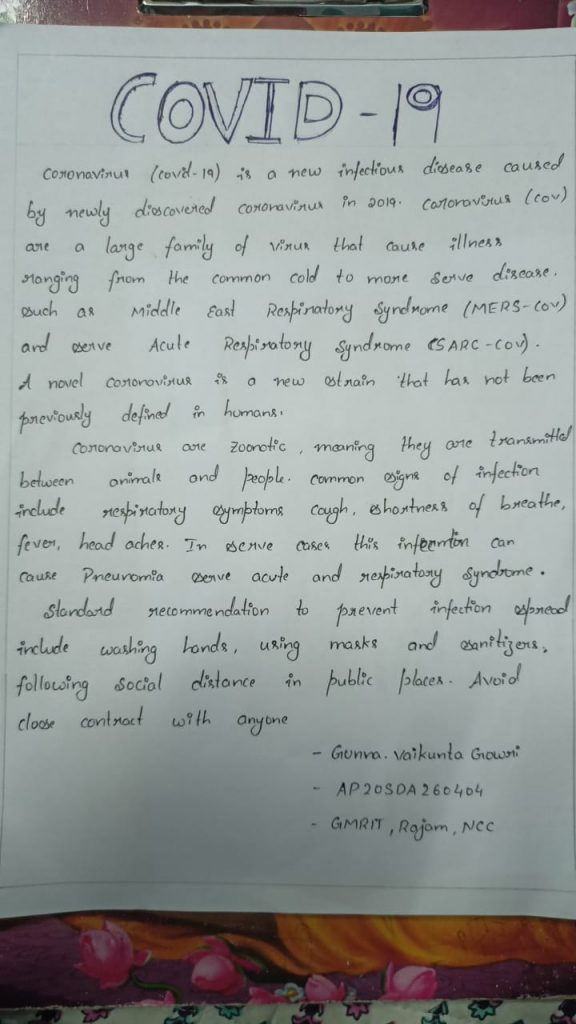 COVID-19
Coronavirus (covid-19) is a new infectious disease caused
by newly discovered coronavirus in 2019. Coronavirus (cov)
are a large family of virus that cause illness
ranging from the common cold to more serve disease.
such as Middle East Respiratory Syndrome (MERS-Cov)
and serve Acute Respiratory Syndrome (SARC-Cov).
A novel coronovirus is a new strain that has not been
previously defined in humans.
Coronavirus are zoonotic, meaning they are transmitted
between animals and people. common signs of infection
include respiratory symptoms cough, shortness of breathe,
fever, head aches. In serve cases this can
cause Pneunomia serve acute and respiratory syndrome.
Standard recommendation to prevent infection spread
include washing hands, using masks and sanitizers,
following social distance in public places. Avoid
close contract with anyone
- Gunna. Vaikunta Gowri
- AP20SDA260404
- GMRIT, Rajam, NCC